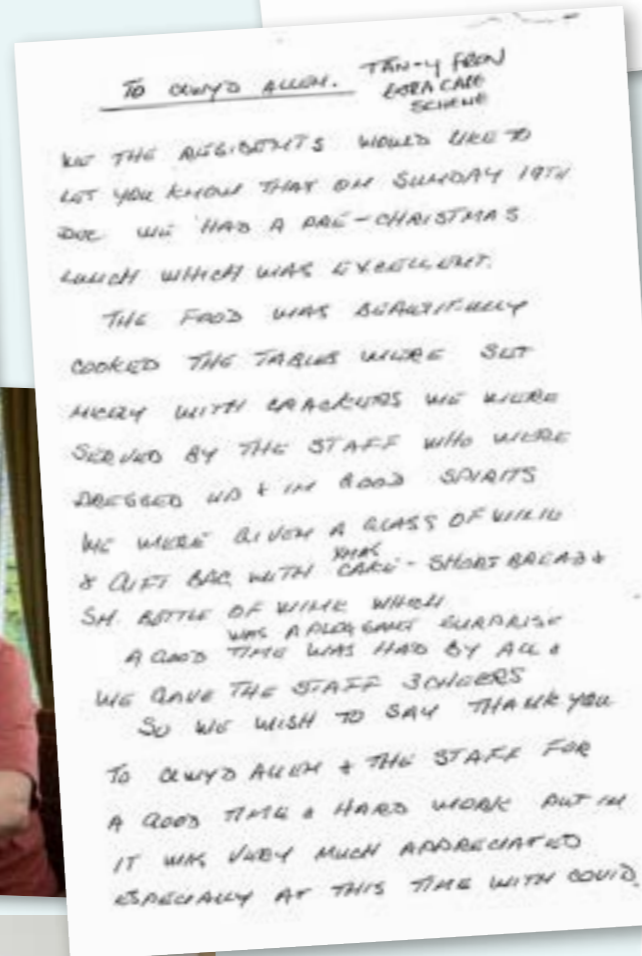 TO CLWYD ALLEN. TAN-Y FRON
EXTRA CARE
SCHEME
WE THE RESIDENTS WOULD LIKE TO
LET YOU KNOW THAT ON SUNDAY 19TH
DEC WE HAD A PRE-CHRISTMAS
LUNCH WHICH WAS EXCELLENT.
THE FOOD WAS BEAUTIFULLY
COOKED THE TABLES WERE SET
NICELY WITH CRACKERS WE WERE
SERVED BY THE STAFF WHO WERE
DRESSED UP & IN GOOD SPIRITS
WE WERE GIVEN A GLASS OF WINE
& GIFT BAG WITH XMAS CAKE - SHORTBREAD &
SM. BOTTLE OF WINE WHICH
WAS A PLEASANT SURPRISE
A GOOD TIME WAS HAD BY ALL &
WE GAVE THE STAFF 3 CHEERS
SO WE WISH TO SAY THANK YOU
TO CLWYD ALLEN & THE STAFF FOR
A GOOD TIME & HARD WORK PUT IN
IT WAS VERY MUCH APPRECIATED
ESPECIALLY AT THIS TIME WITH COVID.